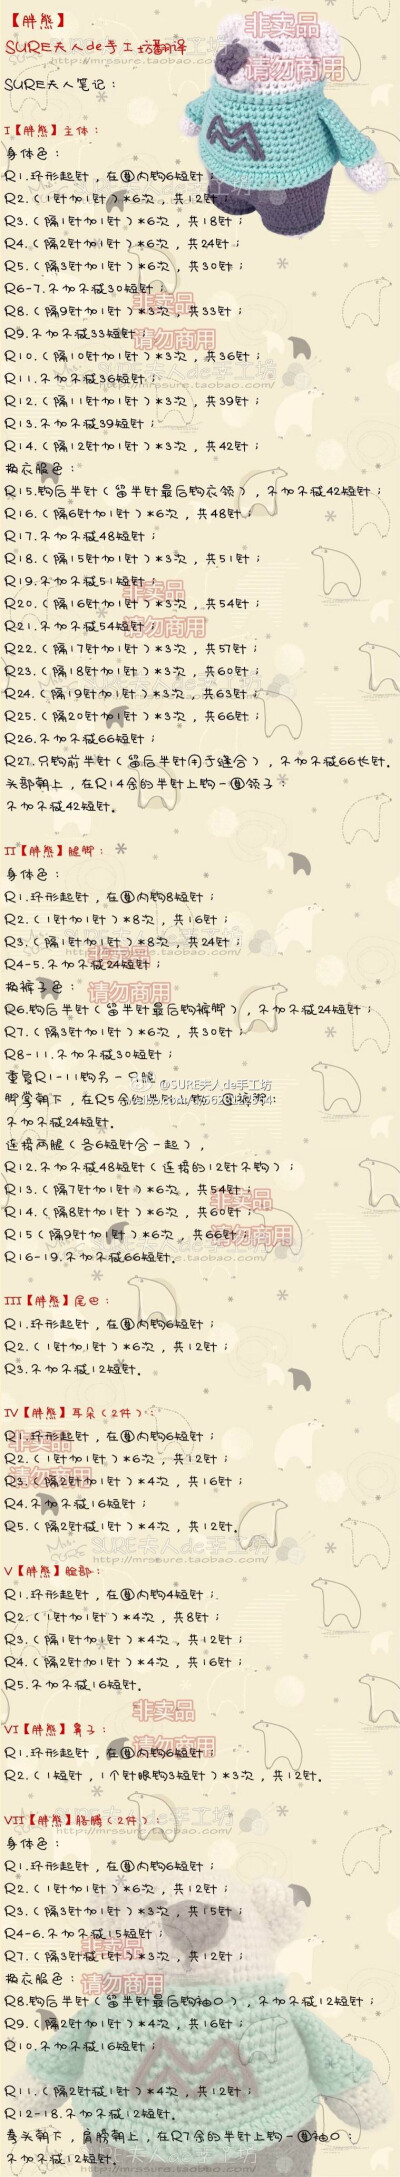 【胖熊】
SURE夫人de手工坊翻译
SURE夫人笔记：
非卖品
请勿商用
I【胖熊】主体：
身体色：
R1.环形起针，在圈内钩6短针；
R2.（1针加1针）*6次，共12针；
R3.（隔1针加1针）*6次，共18针；
R4.（隔2针加1针）*6次，共24针；
R5.（隔3针加1针）*6次，共30针；
R6-7.不加不减30短针；
R8.（隔9针加1针）*3次，共33针；
R9.不加不减33短针；
R10.（隔10针加1针）*3次，共36针；
R11.不加不减36短针；
R12.（隔11针加1针）*3次，共39针；
R13.不加不减39短针；
R14.（隔12针加1针）*3次，共42针；
换衣服色：
R15.钩后半针（留半针最后钩衣领），不加不减42短针；
R16.（隔6针加1针）*6次，共48针；
R17.不加不减48短针；
R18.（隔15针加1针）*3次，共51针；
R19.不加不减51短针；
R20.（隔16针加1针）*3次，共54针；
R21.不加不减54短针；
R22.（隔17针加1针）*3次，共57针；
R23.（隔18针加1针）*3次，共60针；
R24.（隔19针加1针）*3次，共63针；
R25.（隔20针加1针）*3次，共66针；
R26.不加不减66短针；
R27.只钩前半针（留后半针用于缝合），不加不减66长针。
头部朝上，在R14余的半针上钩一圈领子：
不加不减42短针。
II【胖熊】腿脚：
身体色：
R1.环形起针，在圈内钩8短针；
R2.（1针加1针）*8次，共16针；
R3.（隔1针加1针）*8次，共24针；
R4-5.不加不减24短针；
换裤子色：
R6.钩后半针（留半针最后钩裤脚），不加不减24短针；
R7.（隔3针加1针）*6次，共30针；
R8-11.不加不减30短针；
重复R1-11钩另一只腿
@SURE夫人de手工坊
脚掌朝下，在R5余的半针上钩一圈裤脚：
不加不减24短针。
连接两腿（各6短针合一起），
R12.不加不减48短针（连接的12针不钩）；
R13.（隔7针加1针）*6次，共54针；
R14.（隔8针加1针）*6次，共60针；
R15（隔9针加1针）*6次，共66针；
R16-19.不加不减66短针。
III【胖熊】尾巴：
R1.环形起针，在圈内钩6短针；
R2.（1针加1针）*6次，共12针；
R3.不加不减12短针。
IV【胖熊】耳朵（2件）：
R1.环形起针，在圈内钩6短针；
R2.（1针加1针）*6次，共12针；
R3.（隔2针加1针）*4次，共16针；
R4.不加不减16短针；
R5.（隔2针减1针）*4次，共12针。
V【胖熊】脸部：
R1.环形起针，在圈内钩4短针；
R2.（1针加1针）*4次，共8针；
R3.（隔1针加1针）*4次，共12针；
R4.（隔2针加1针）*4次，共16针；
R5.不加不减16短针。
VI【胖熊】鼻子：
R1.环形起针，在圈内钩6短针；
R2.（1短针，1个针眼钩3短针）*3次，共12针。
VII【胖熊】胳膊（2件）：
身体色：
R1.环形起针，在圈内钩6短针；
R2.（1针加1针）*6次，共12针；
R3.（隔3针加1针）*3次，共15针；
R4-6.不加不减15短针；
R7.（隔3针减1针）*3次，共12针；
换衣服色：
R8.钩后半针（留半针最后钩袖口），不加不减12短针；
R9.（隔2针加1针）*4次，共16针；
R10.不加不减16短针；
R11.（隔2针减1针）*4次，共12针；
R12-18.不加不减12短针。
拳头朝下，肩膀朝上，在R7余的半针上钩一圈袖口：
不加不减12短针。